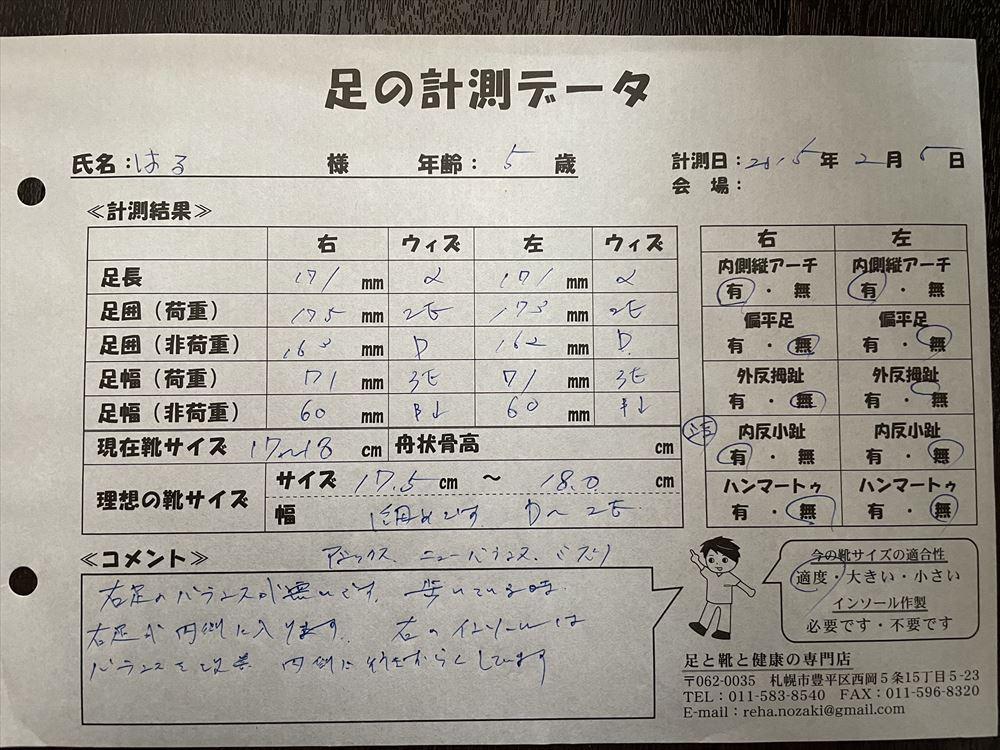 足の計測データ
氏名：はる 様 年齢：5 歳
計測日：2015年 2月 5日
会 場：
≪計測結果≫
右 ウィズ 左 ウィズ
足長 171 mm 171 mm
足囲（荷重） 175 mm 2E 173 mm 2E
足囲（非荷重） 163 mm D 162 mm D
足幅（荷重） 71 mm 3E 71 mm 3E
足幅（非荷重） 60 mm 60 mm
現在靴サイズ 17〜18 cm 舟状骨高 cm
理想の靴サイズ サイズ 17.5 cm 〜 18.0 cm
幅 細めです D〜2E
右 左
内側縦アーチ 内側縦アーチ
有 ・ 無 有 ・ 無
偏平足 偏平足
有 ・ 無 有 ・ 無
外反拇趾 外反拇趾
有 ・ 無 有 ・ 無
内反小趾 内反小趾
有 ・ 無 有 ・ 無
ハンマートゥ ハンマートゥ
有 ・ 無 有 ・ 無
≪コメント≫ アシックス、ニューバランス、
右足のバランスが悪いです。歩いている時
右足が内側に入ります。右のインソールは
バランスを改善 内側に しています
今の靴サイズの適合性
適度・大きい・小さい
インソール作製
必要です・不要です
足と靴と健康の専門店
〒062-0035 札幌市豊平区西岡５条15丁目５-23
TEL：011-583-8540 FAX：011-596-8320
E-mail：reha.nozaki@gmail.com